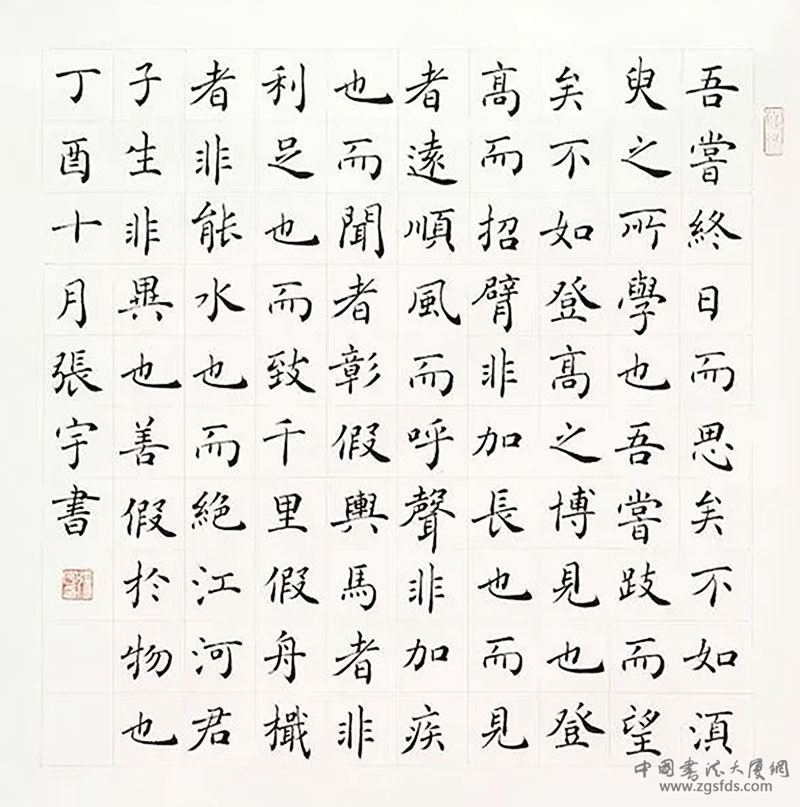 吾嘗終日而思矣不如湏
臾之所學也吾嘗跂而望
矣不如登髙之博見也登
髙而招臂非加長也而見
者遠順風而呼聲非加疾
也而聞者彰假輿馬者非
利足也而致千里假舟檝
者非能水也而絶江河君
子生非異也善假於物也
丁酉十月張宇書
中國書法大廈網
www.zgsfds.com